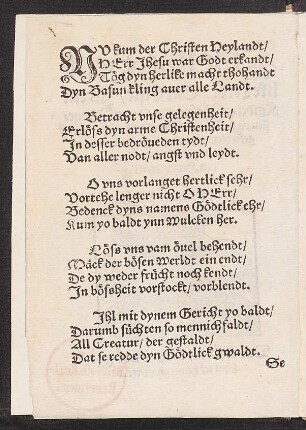 NV kum der Christen Heylandt/
HErr Jhesu war Godt erkandt/
Tög dyn herlike macht thohandt
Dyn Basun kling auer alle Landt.
Betracht vnse gelegenheit/
Erlöss dyn arme Christenheit/
In desser bedröueden tydt/
Van aller nodt/ angst vnd leydt.
O vns vorlanget hertlick sehr/
Vortehe lenger nicht O HErr/
Bedenck dyns namens Gödtlick ehr/
Kum yo baldt ynn Wulcken her.
Löss vns vam öuel behendt/
Mäck der bösen Werldt ein endt/
De dy weder frücht noch kendt/
In bössheit vorstockt/ vorblendt.
Ihl mit dynem Gericht yo baldt/
Darumb süchten so mennichfaldt/
All Creatur/ der gestaldt/
Dat se redde dyn Gödtlick gwaldt.
Se